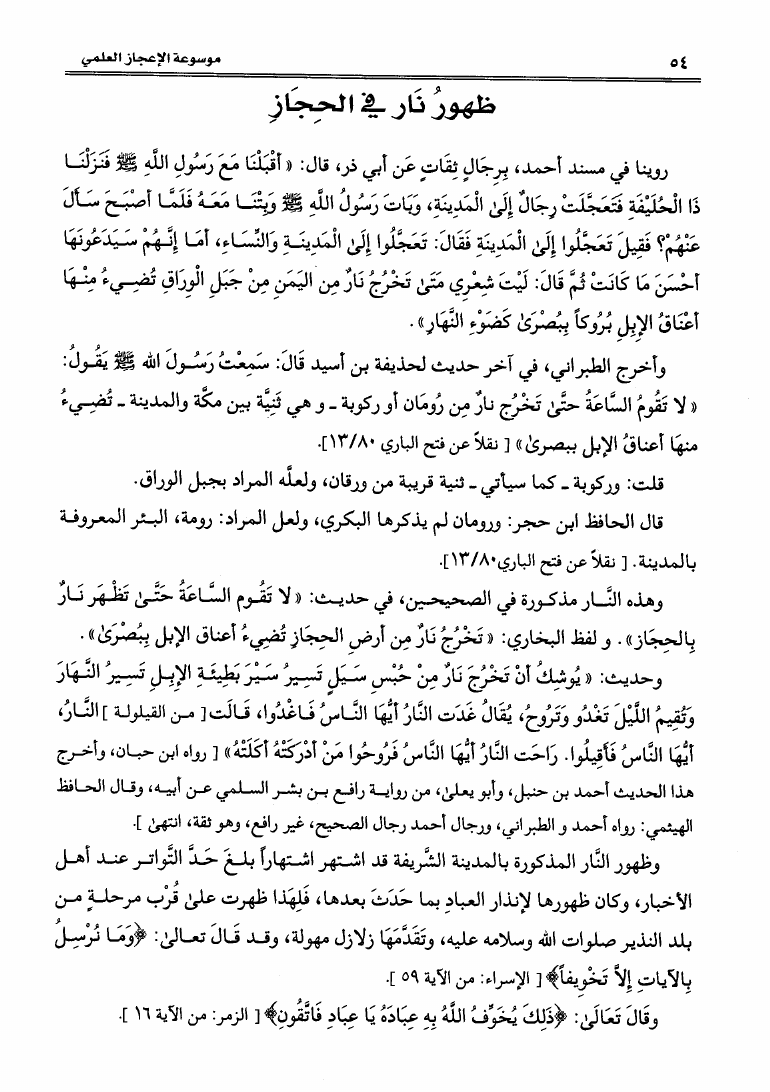 ٥٤
موسوعة الإعجاز العلمي
ظهورُ نَار في الحِجَازِ
روينا في مسند أحمد، بِرِجَالٍ ثِقَاتٍ عَن أبي ذر، قال: «أَقْبَلْنَا مَعَ رَسُولِ اللَّهِ ﷺ فَنَزَلْنَا
ذَا الْحُلَيْفَةِ فَتَعَجَّلَتْ رِجَالٌ إِلَىٰ الْمَدِينَةِ، وَبَاتَ رَسُولُ اللَّهِ ﷺ وَبِتْنَا مَعَهُ فَلَمَّا أَصْبَحَ سَأَلَ
عَنْهُمْ؟ فَقِيلَ تَعَجَّلُوا إِلَىٰ الْمَدِينَةِ فَقَالَ: تَعَجَّلُوا إِلَىٰ الْمَدِينَةِ وَالنِّسَاءِ، أَمَا إِنَّهُمْ سَيَدَعُونَهَا
أَحْسَنَ مَا كَانَتْ ثُمَّ قَالَ: لَيْتَ شِعْرِي مَتَىٰ تَخْرُجُ نَارٌ مِن الْيَمَنِ مِنْ جَبَلِ الْوِرَاقِ تُضِيءُ مِنْهَا
أَعْنَاقُ الإِبِلِ بُرُوكاً بِبُصْرَىٰ كَضَوْءِ النَّهَارِ».
وأخرج الطبراني، في آخر حديث لحذيفة بن أسيد قَالَ: سَمِعْتُ رَسُولَ الله ﷺ يَقُولُ:
«لا تَقُومُ السَّاعَةُ حتَّىٰ تَخْرُجَ نارٌ مِن رُومَان أو ركوبة ـ و هي ثَنِيَّة بين مكَّة والمدينة ـ تُضِيءُ
منهَا أعناقُ الإبل ببصرىٰ» [ نقلاً عن فتح الباري ١٣/٨٠].
قلت: وركوبة ـ كما سيأتي ـ ثنية قريبة من ورقان، ولعلَّه المراد بجبل الوراق.
قال الحافظ ابن حجر: ورومان لم يذكرها البكري، ولعل المراد: رومة، البئر المعروفة
بالمدينة. [ نقلاً عن فتح الباري١٣/٨٠].
وهذه النَّار مذكورة في الصحيحين، في حديث: «لا تَقُوم السَّاعَةُ حَتَّىٰ تَظْهَر نَارٌ
بِالحِجَاز». و لفظ البخاري: «تَخْرُجُ نَارٌ مِن أرضِ الحِجَازِ تُضِيءُ أعناق الإبل بِبُصْرَىٰ».
وحديث: «يُوشِكُ أَنْ تَخْرُجَ نَارٌ مِنْ حُبْسِ سَيَلٍ تَسِيرُ سَيْرَ بَطِيئَةِ الإِبِلِ تَسِيرُ النَّهَارَ
وَتُقِيمُ اللَّيْلَ تَغْدُو وَتَرُوحُ، يُقَالُ غَدَت النَّارُ أَيُّهَا النَّاسُ فَاغْدُوا، قَالَت[ من القيلولة ]النَّارُ،
أَيُّهَا النَّاسُ فَأَقِيلُوا. رَاحَت النَّارُ أَيُّهَا النَّاسُ فَرُوحُوا مَنْ أَدْرَكَتْهُ أَكَلَتْهُ» [ رواه ابن حبان، وأخرج
هذا الحديث أحمد بن حنبل، وأبو يعلىٰ، من رواية رافع بن بشر السلمي عن أبيه، وقال الحافظ
الهيثمي: رواه أحمد و الطبراني، ورجال أحمد رجال الصحيح، غير رافع، وهو ثقة، انتهىٰ ].
وظهور النَّار المذكورة بالمدينة الشَّريفة قد اشتهر اشتهاراً بلغ حَدَّ التَّواتر عند أهل
الأخبار، وكان ظهورها لإنذار العبادِ بما حَدَثَ بعدها، فَلِهَذا ظهرت علىٰ قُرْبِ مرحلةٍ من
بلد النذير صلوات الله وسلامه عليه، وتَقدَّمَهَا زلازل مهولة، وقد قَالَ تعالىٰ: ﴿وَمَا نُرْسِلُ
بِالآيَاتِ إِلاَّ تَخْوِيفاً﴾ [ الإسراء: من الآية ٥٩ ].
وقَالَ تَعَالَىٰ: ﴿ذَلِكَ يُخَوِّفُ اللَّهُ بِهِ عِبَادَهُ يَا عِبَادِ فَاتَّقُونِ﴾ [ الزمر: من الآية ١٦ ].